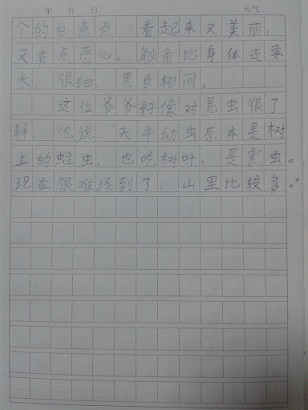 年 月 日 天气
个的白点点，看起来又美丽，
又有点恶心。触角比身体还要
长，很细，黑白相间。
这位爷爷好像对昆虫很了
解，他说：“天牛幼虫原本是树
上的蛀虫，也吃树叶，是害虫。
现在很难找到了，山里比较多。”